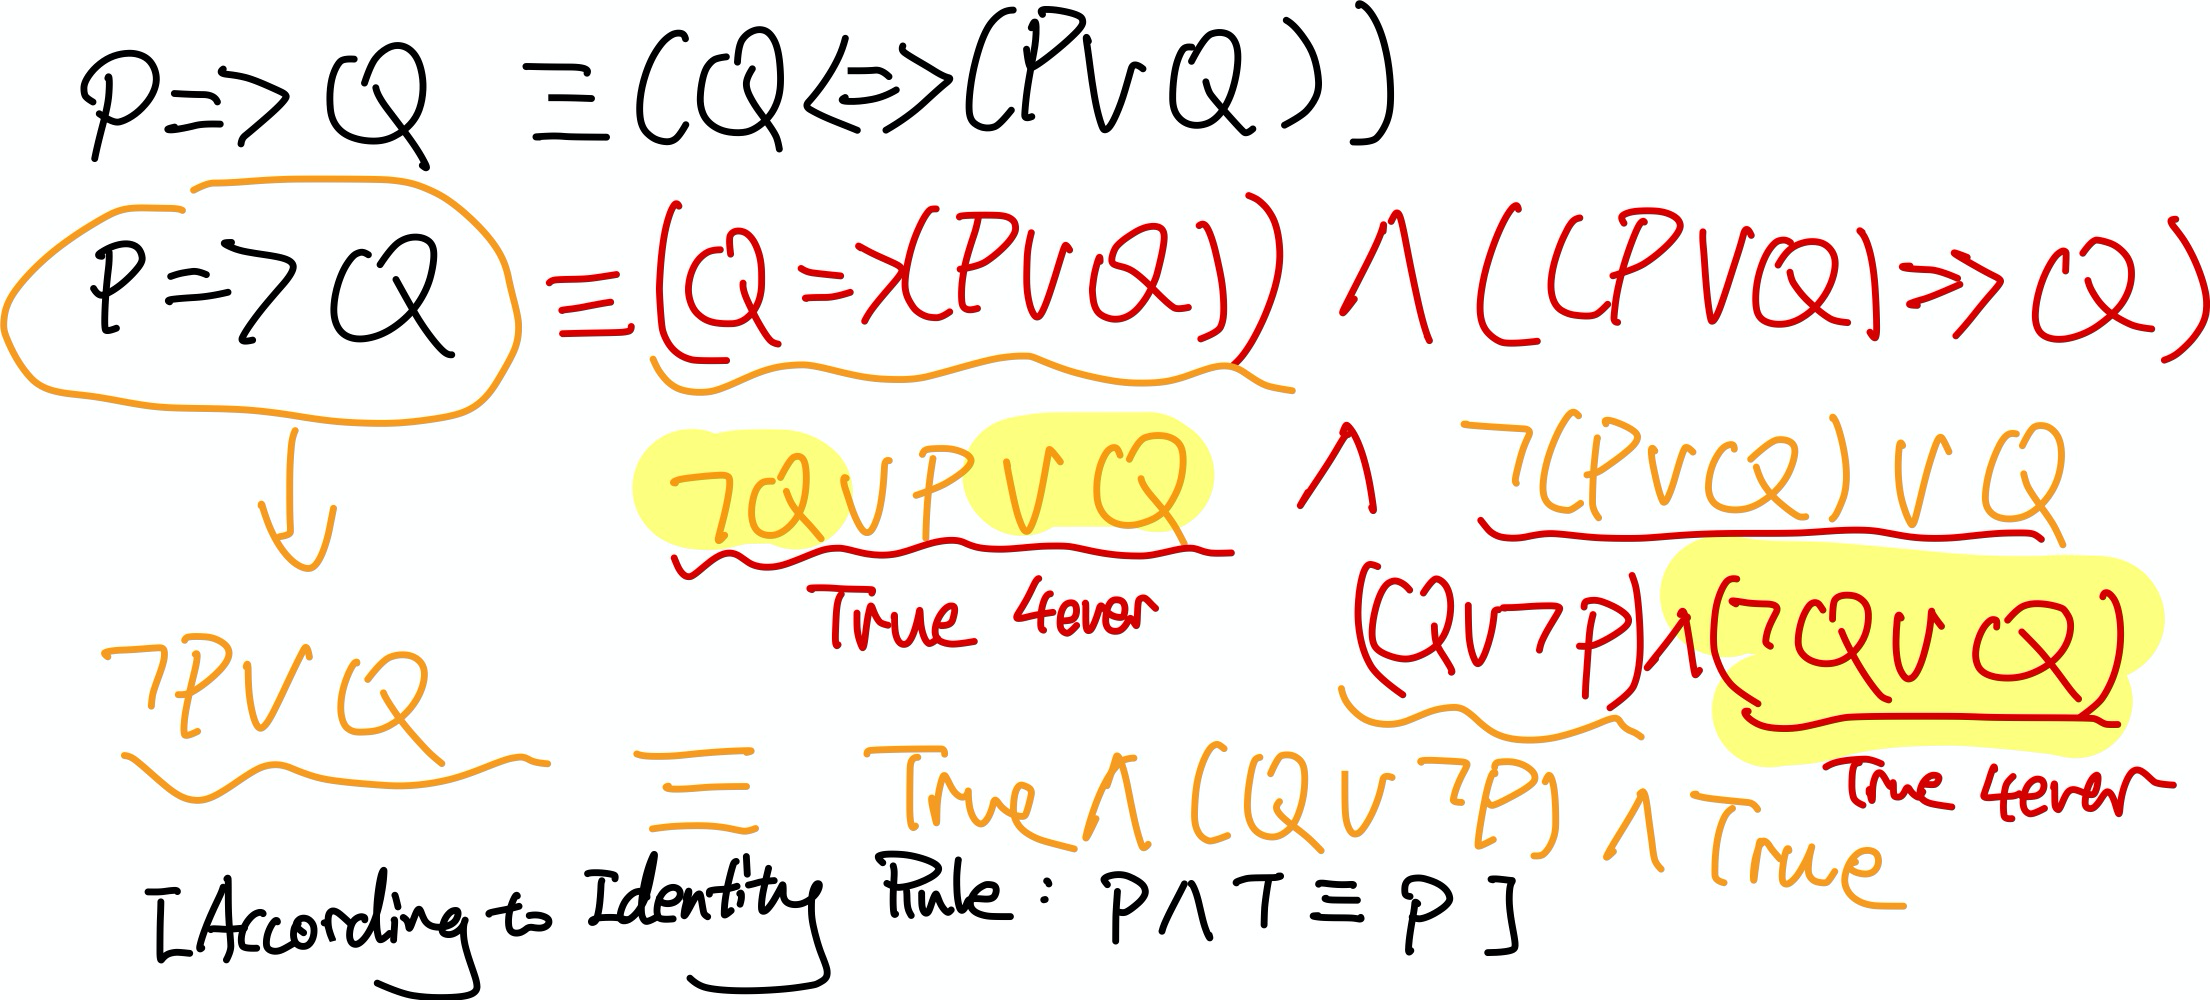 P => Q ≡ (Q <=> (P ∨ Q))
P => Q ≡ (Q => (P ∨ Q)) ∧ ((P ∨ Q) => Q)
¬Q ∨ P ∨ Q ∧ ¬(P ∨ Q) ∨ Q
True 4ever
(Q ∨ ¬P) ∧ (¬Q ∨ Q)
True 4ever
¬P ∨ Q ≡ True ∧ (Q ∨ ¬P) ∧ True
[According to Identity Rule: P ∧ T ≡ P]